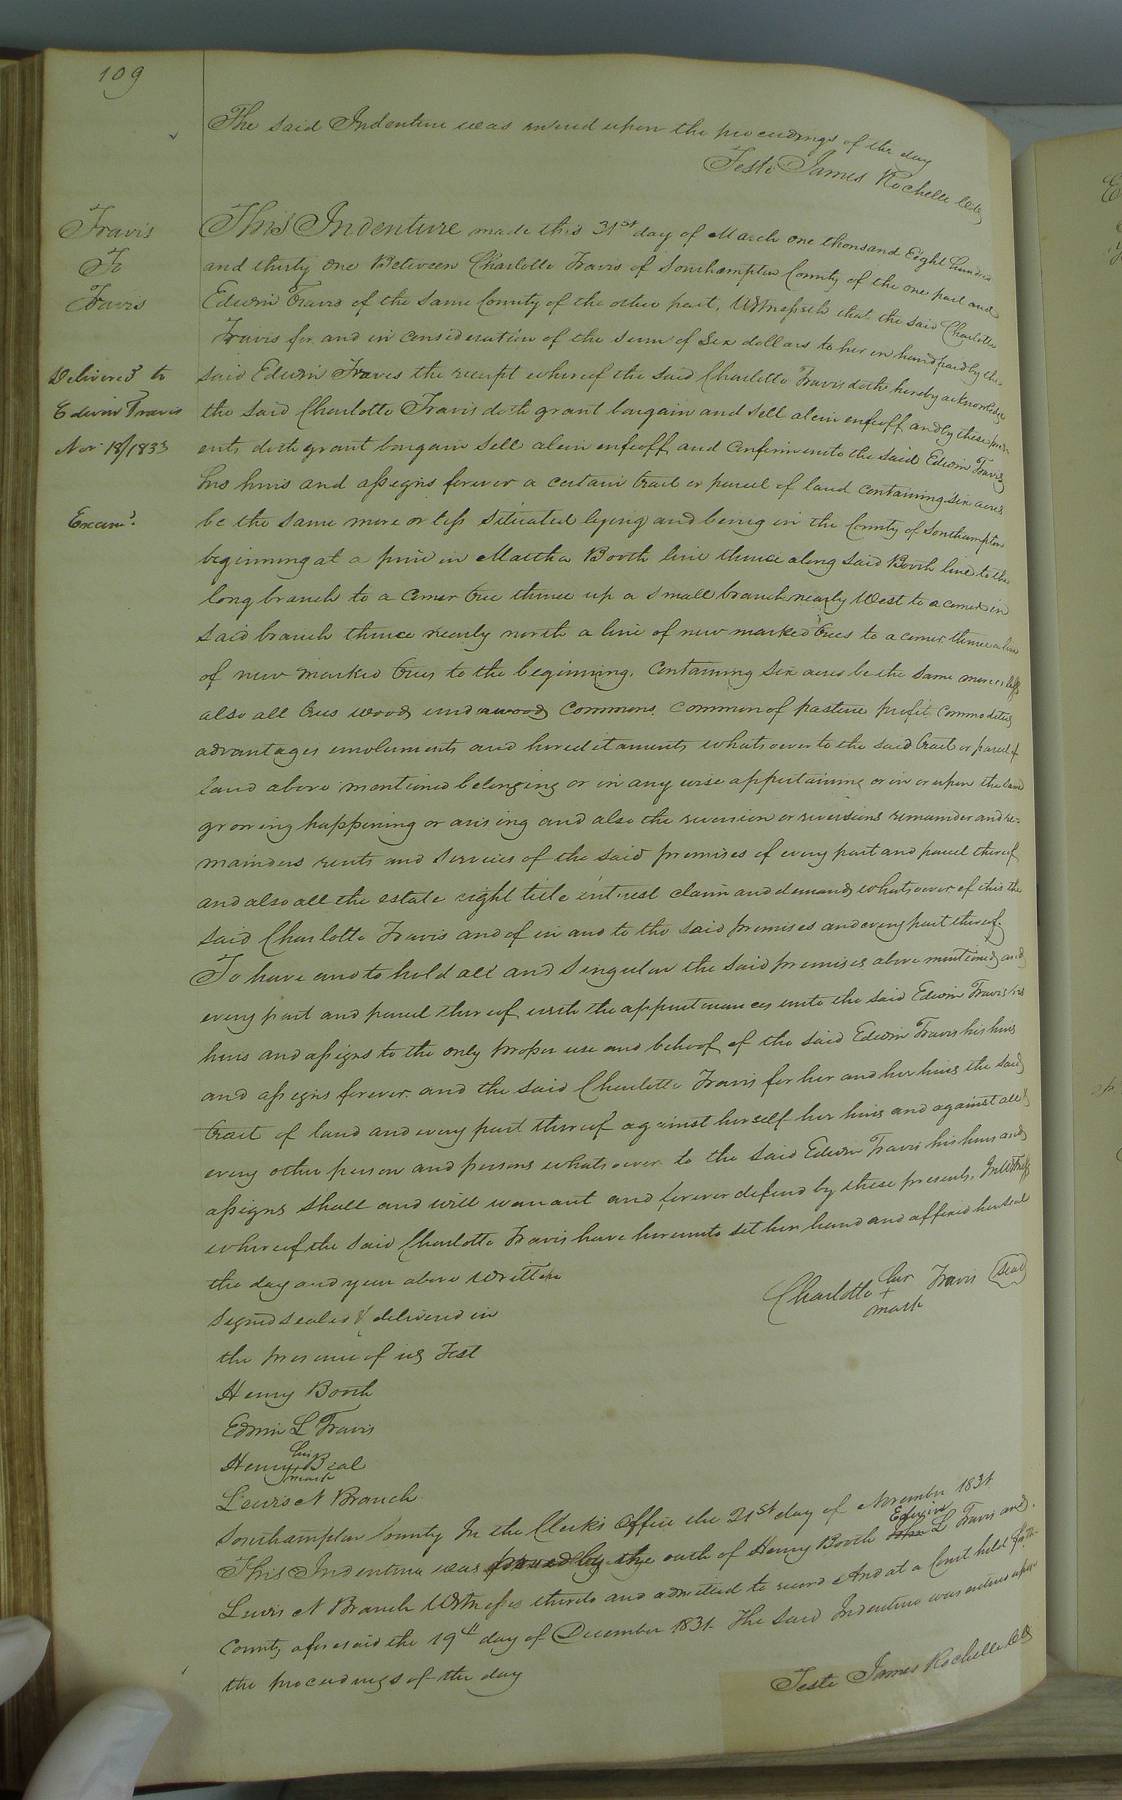 109
The said Indenture was entered upon the proceedings of the day
Teste James Rochelle Clk
Travis
To
Travis
Delivered to
Edwin Travis
Nov 18/1833
Exam.d
This Indenture made this 31st day of March one thousand Eight hundred
and thirty one Between Charlotte Travis of Southampton County of the one part and
Edwin Travis of the same County of the other part, Witnesseth that the said Charlotte
Travis for and in consideration of the sum of Six dollars to her in hand paid by the
said Edwin Travis the receipt whereof the said Charlotte Travis doth hereby acknowledge
the said Charlotte Travis doth grant bargain and sell alein enfeoff and by these pres-
ents doth grant bargain sell alein enfeoff and Confirm unto the said Edwin Travis
his heirs and assigns forever a certain tract or parcel of land containing six acres
be the same more or less situated lying and being in the County of Southampton
beginning at a pine in Martha Booth line thence along said Booth line to the
long branch to a corner tree thence up a small branch nearly West to a corner in
said branch thence nearly north a line of new marked trees to a corner thence a line
of new marked trees to the beginning, containing six acres be the same more or less
also all trees woods underwoods commons common of pasture profit commodities
advantages emoluments and hereditaments whatsoever to the said tract or parcel of
land above mentioned belonging or in any wise appertaining or in or upon the land
growing happening or arising and also the reversion or reversions remainder and re-
mainders rents and services of the said premises of every part and parcel thereof
and also all the estate right title intrest claim and demands whatsoever of this the
said Charlotte Travis and of in and to the said premises and every part thereof.
To have and to hold all and singular the said premises above mentioned and
every part and parcel thereof with the appurtenances unto the said Edwin Travis his
heirs and assigns to the only proper use and behoof of the said Edwin Travis his heirs
and assigns forever. and the said Charlotte Travis for her and her heirs the said
tract of land and every part thereof against herself her heirs and against all &
every other person and persons whatsoever to the said Edwin Travis his heirs and
assigns shall and will warrant and forever defend by these presents. In Witness
whereof the said Charlotte Travis have hereunto set her hand and affixed her seal
the day and year above written
Charlotte her + mark Travis seal
Signed sealed & delivered in
the presence of us Test
Henry Booth
Edwin L Travis
Henry his + mark Beal
Lewis N Branch
Southampton County In the Clerk's Office the 21st day of November 1831
This Indenture was proved by the oath of Henry Booth L Travis and
Lewis N Branch Witnesses thereto and admitted to record And at a Court held for the
County aforesaid the 19th day of December 1831 The said Indenture was entered upon
the proceedings of the day
Teste James Rochelle Clk